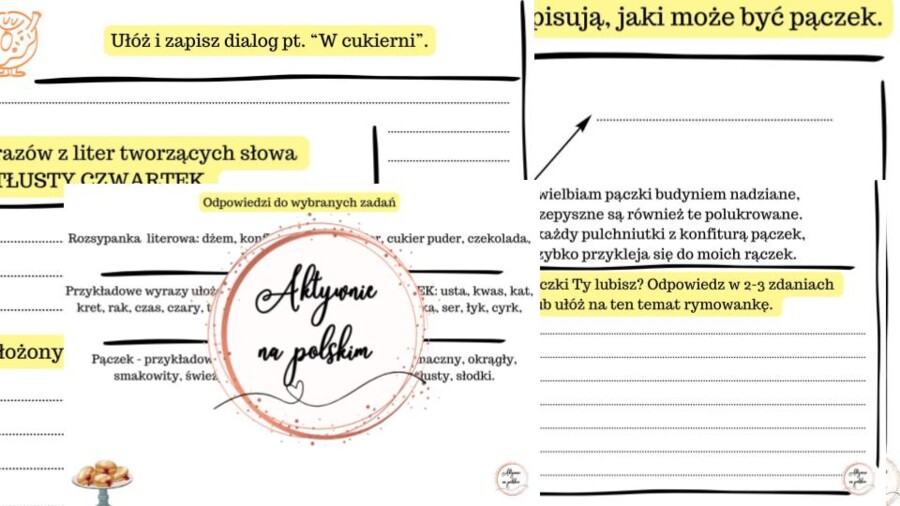 Ułóż i zapisz dialog pt. “W cukierni”.
pisują, jaki może być pączek.
razów z liter tworzących słowa
TŁUSTY CZWARTEK
Odpowiedzi do wybranych zadań
Rozsypanka literowa: dżem, cukier puder, czekolada,
Przykładowe wyrazy EK: usta, kwas, kat,
kret, rak, czas, czary, ser, łyk, cyrk,
Pączek - okrągły,
smakowity, słodki.
Aktywnie
na polskim
wielbiam pączki budyniem nadziane,
zepyszne są również te polukrowane.
każdy pulchniutki z konfiturą pączek,
zybko przykleja się do moich rączek.
czki Ty lubisz? Odpowiedz w 2-3 zdaniach
ub ułóż na ten temat rymowankę.
łożony
Aktywnie
na polskim
Aktywnie
na polskim